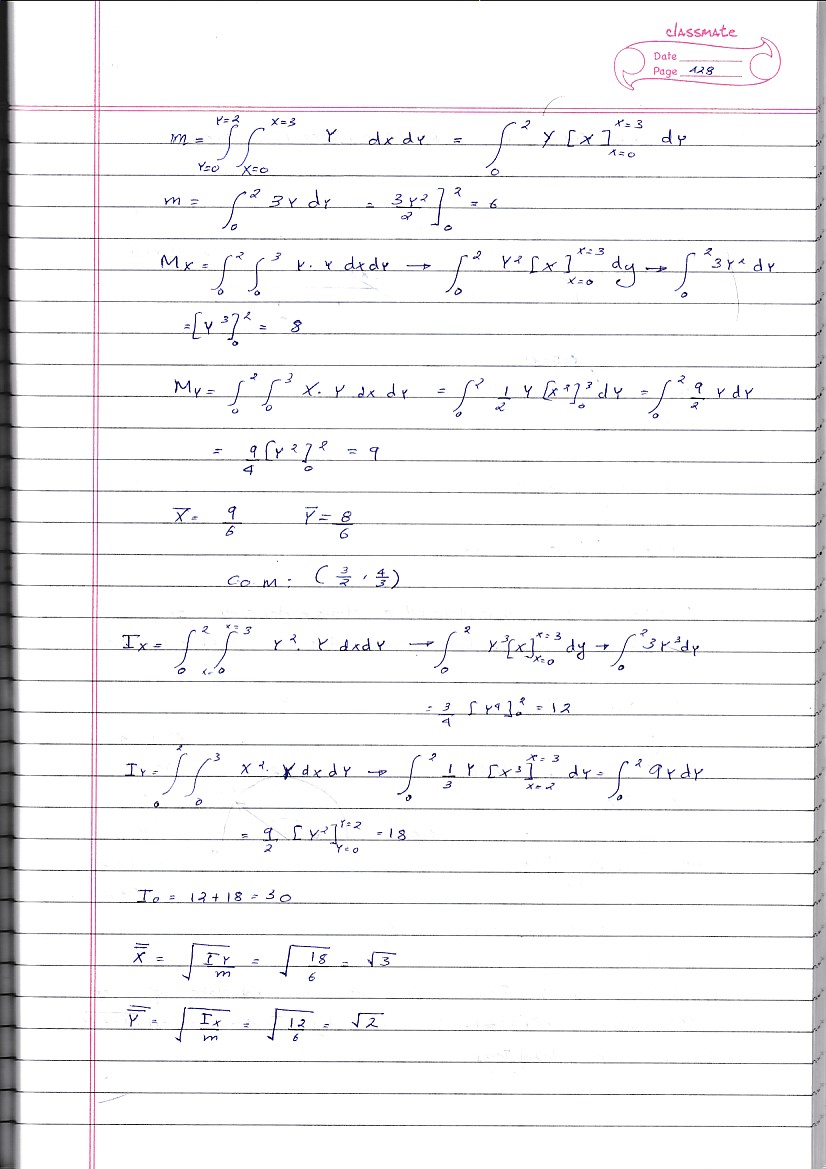 classmate
Date
Page 128
m = ∫_{Y=0}^{Y=2} ∫_{X=0}^{X=3} Y dx dy = ∫_0^2 Y [X]_{X=0}^{X=3} dy
m = ∫_0^2 3Y dy = 3Y²/2 ]_0^2 = 6
Mx = ∫_0^2 ∫_0^3 Y · Y dx dy → ∫_0^2 Y² [X]_{X=0}^{X=3} dy → ∫_0^2 3Y² dy
= [Y³]_0^2 = 8
MY = ∫_0^2 ∫_0^3 X · Y dx dy = ∫_0^2 1/2 Y [X²]_0^3 dy = ∫_0^2 9/2 Y dy
= 9/4 [Y²]_0^2 = 9
X̅ = 9/6 Y̅ = 8/6
Co m : (3/2 , 4/3)
Ix = ∫_0^2 ∫_{X=0}^{X=3} Y² · Y dx dy → ∫_0^2 Y³ [X]_{X=0}^{X=3} dy → ∫_0^2 3Y³ dy
= 3/4 [Y⁴]_0^2 = 12
IY = ∫_0^2 ∫_0^3 X² · Y dx dy → ∫_0^2 1/3 Y [X³]_{X=2}^{X=3} dy = ∫_0^2 9Y dy
= 9/2 [Y²]_{Y=0}^{Y=2} = 18
I₀ = 12 + 18 = 30
X̿ = √(IY/m) = √(18/6) = √3
Y̿ = √(Ix/m) = √(12/6) = √2